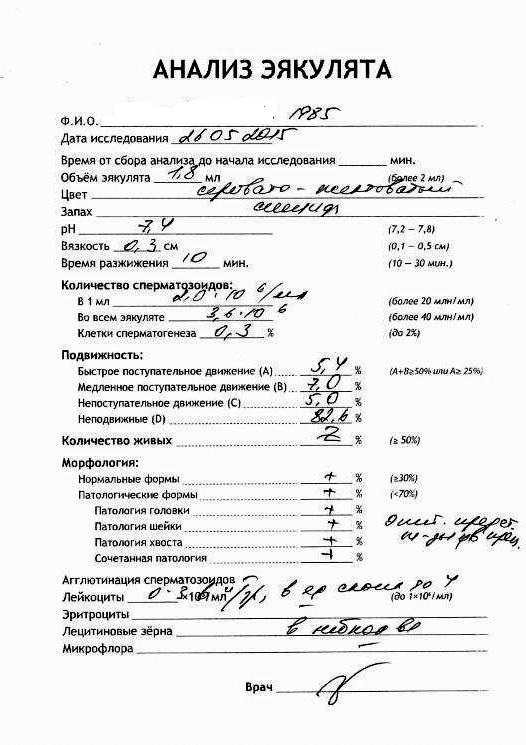 АНАЛИЗ ЭЯКУЛЯТА
Ф.И.О. 1985
Дата исследования 26 05 2015
Время от сбора анализа до начала исследования мин.
Объём эякулята 1,8 мл (более 2 мл)
Цвет серовато-желтоватый
Запах
pH 7,4 (7,2 – 7,8)
Вязкость 0,3 см (0,1 – 0,5 см)
Время разжижения 10 мин. (10 – 30 мин.)
Количество сперматозоидов:
В 1 мл 2,0·10⁶/мл (более 20 млн/мл)
Во всем эякуляте 3,6·10⁶ (более 40 млн/мл)
Клетки сперматогенеза 0,3 % (до 2%)
Подвижность:
Быстрое поступательное движение (А) 5,4 % (A+B≥50% или A≥ 25%)
Медленное поступательное движение (В) 7,0 %
Непоступательное движение (С) 5,0 %
Неподвижные (D) 82,6 %
Количество живых % (≥ 50%)
Морфология:
Нормальные формы + % (≥30%)
Патологические формы + % (<70%)
Патология головки + %
Патология шейки + %
Патология хвоста + %
Сочетанная патология + %
Агглютинация сперматозоидов –
Лейкоциты 0-3 ×10⁶/мл в до 4 (до 1×10⁶/мл)
Эритроциты –
Лецитиновые зёрна в
Микрофлора –
Врач